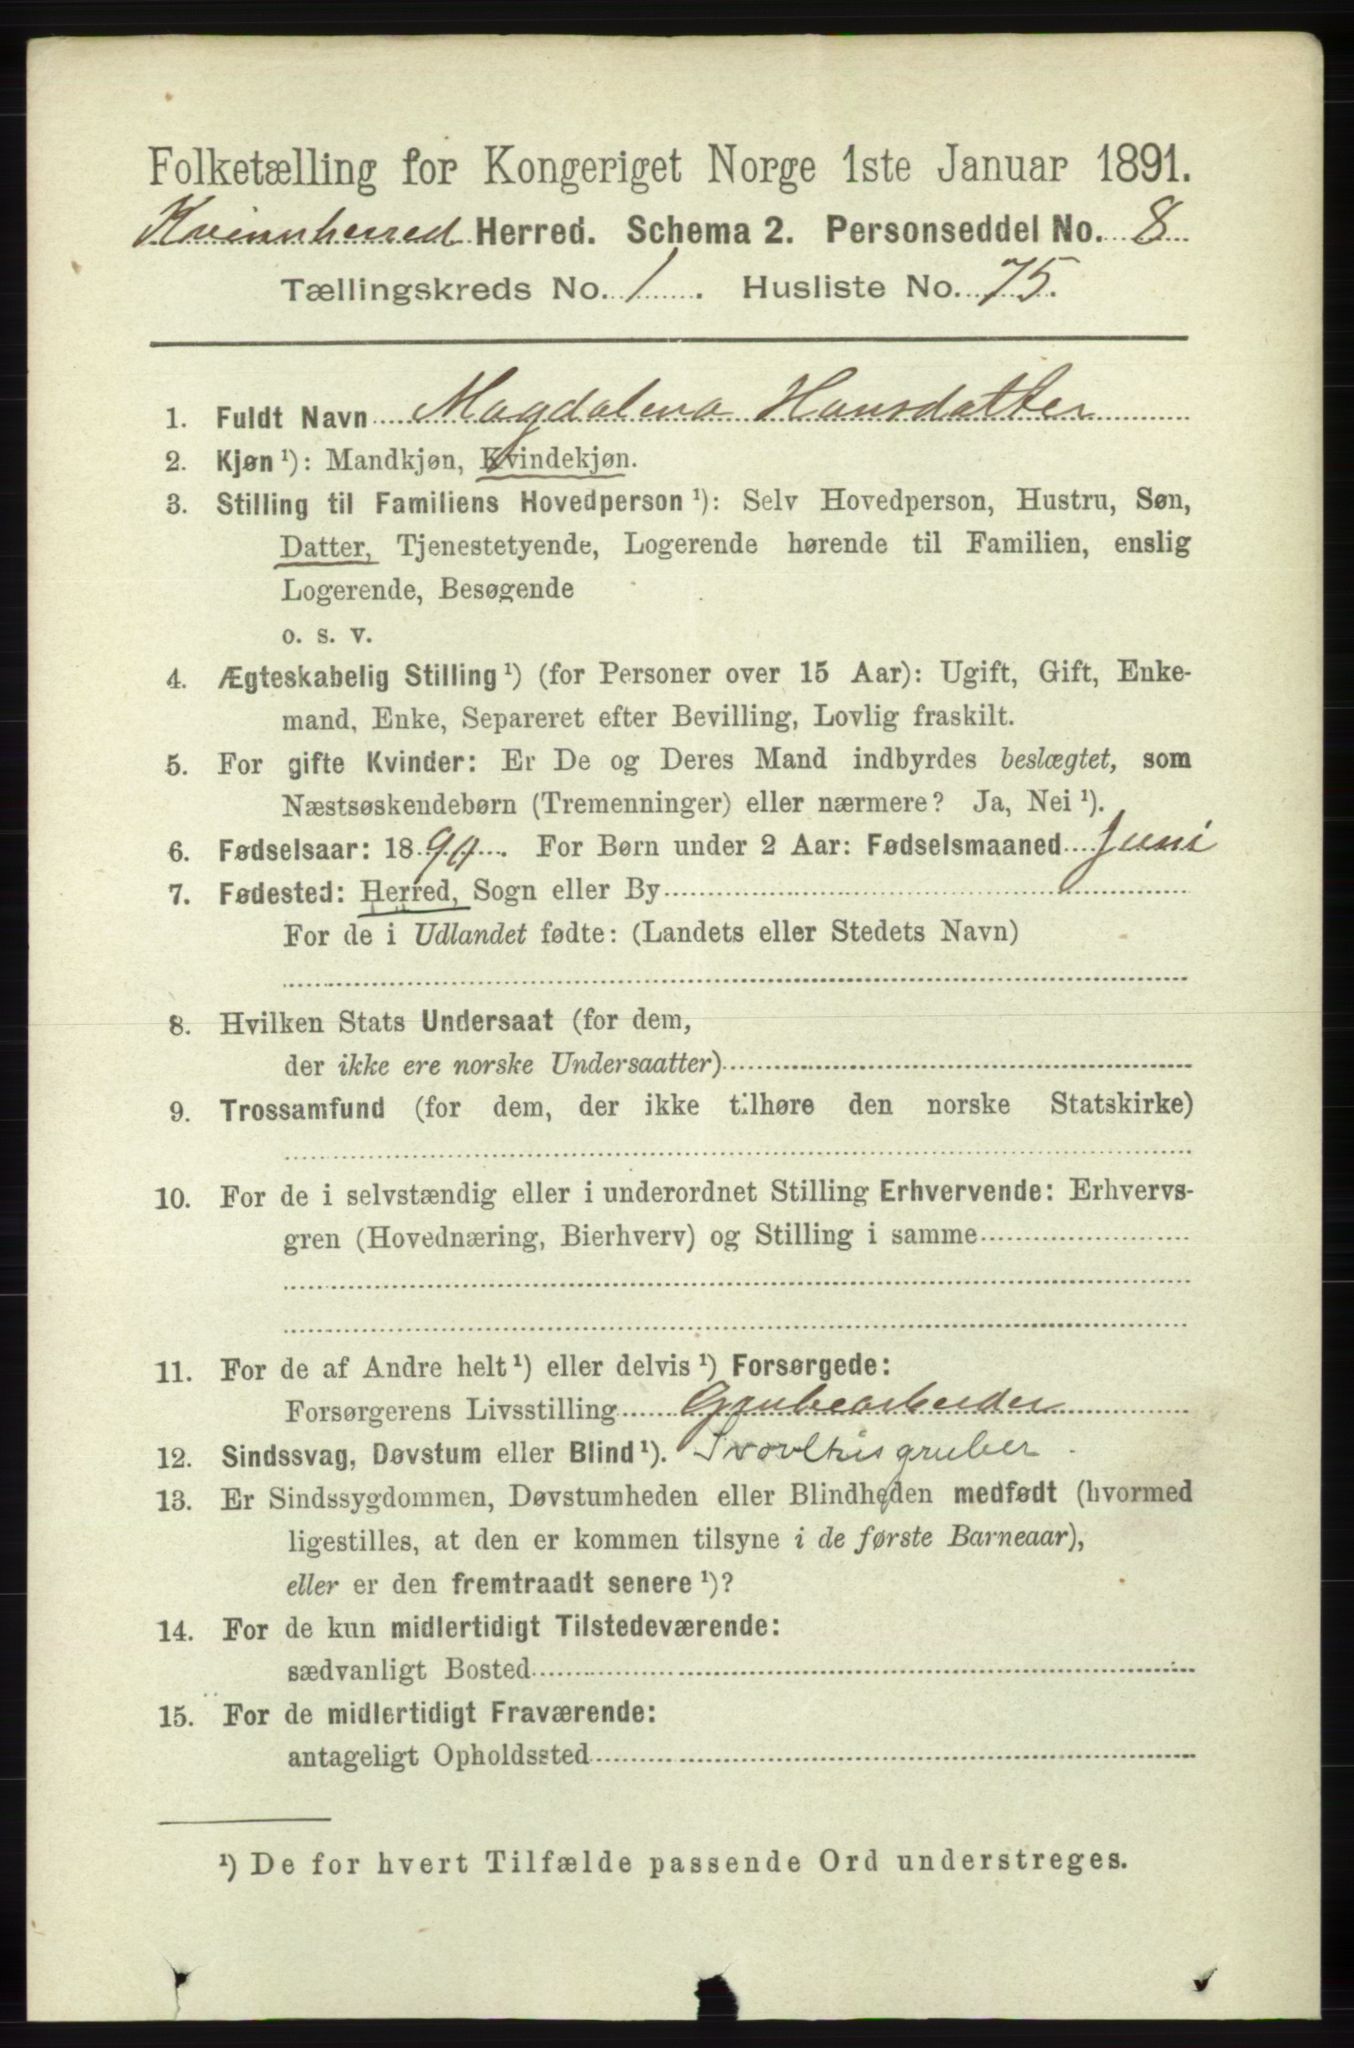 Folketælling for Kongeriget Norge 1ste Januar 1891.
Kvinnherred Herred. Schema 2. Personseddel No. 8
Tællingskreds No. 1. Husliste No. 75.
1. Fuldt Navn Magdalena Hansdatter
2. Kjøn ¹): Mandkjøn, Kvindekjøn.
3. Stilling til Familiens Hovedperson ¹): Selv Hovedperson, Hustru, Søn,
Datter, Tjenestetyende, Logerende hørende til Familien, enslig
Logerende, Besøgende
o. s. v.
4. Ægteskabelig Stilling ¹) (for Personer over 15 Aar): Ugift, Gift, Enke-
mand, Enke, Separeret efter Bevilling, Lovlig fraskilt.
5. For gifte Kvinder: Er De og Deres Mand indbyrdes beslægtet, som
Næstsøskendebørn (Tremenninger) eller nærmere? Ja, Nei ¹).
6. Fødselsaar: 1890. For Børn under 2 Aar: Fødselsmaaned Juni
7. Fødested: Herred, Sogn eller By
For de i Udlandet fødte: (Landets eller Stedets Navn)
8. Hvilken Stats Undersaat (for dem,
der ikke ere norske Undersaatter)
9. Trossamfund (for dem, der ikke tilhøre den norske Statskirke)
10. For de i selvstændig eller i underordnet Stilling Erhvervende: Erhvervs-
gren (Hovednæring, Bierhverv) og Stilling i samme
11. For de af Andre helt ¹) eller delvis ¹) Forsørgede:
Forsørgerens Livsstilling Grubearbeider
12. Sindssvag, Døvstum eller Blind ¹). Svovlkisgruber.
13. Er Sindssygdommen, Døvstumheden eller Blindheden medfødt (hvormed
ligestilles, at den er kommen tilsyne i de første Barneaar),
eller er den fremtraadt senere ¹)?
14. For de kun midlertidigt Tilstedeværende:
sædvanligt Bosted
15. For de midlertidigt Fraværende:
antageligt Opholdssted
¹) De for hvert Tilfælde passende Ord understreges.